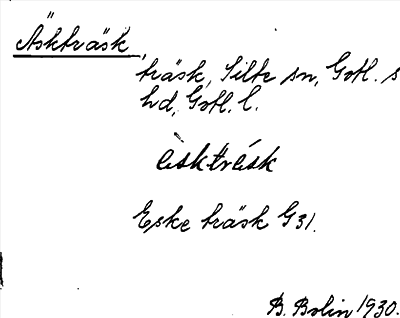 Äskträsk,
träsk, Silte sn, Gotl. s
hd, Gotl. l.
èsktrésk
Eske träsk G31.
B. Bolin 1930.